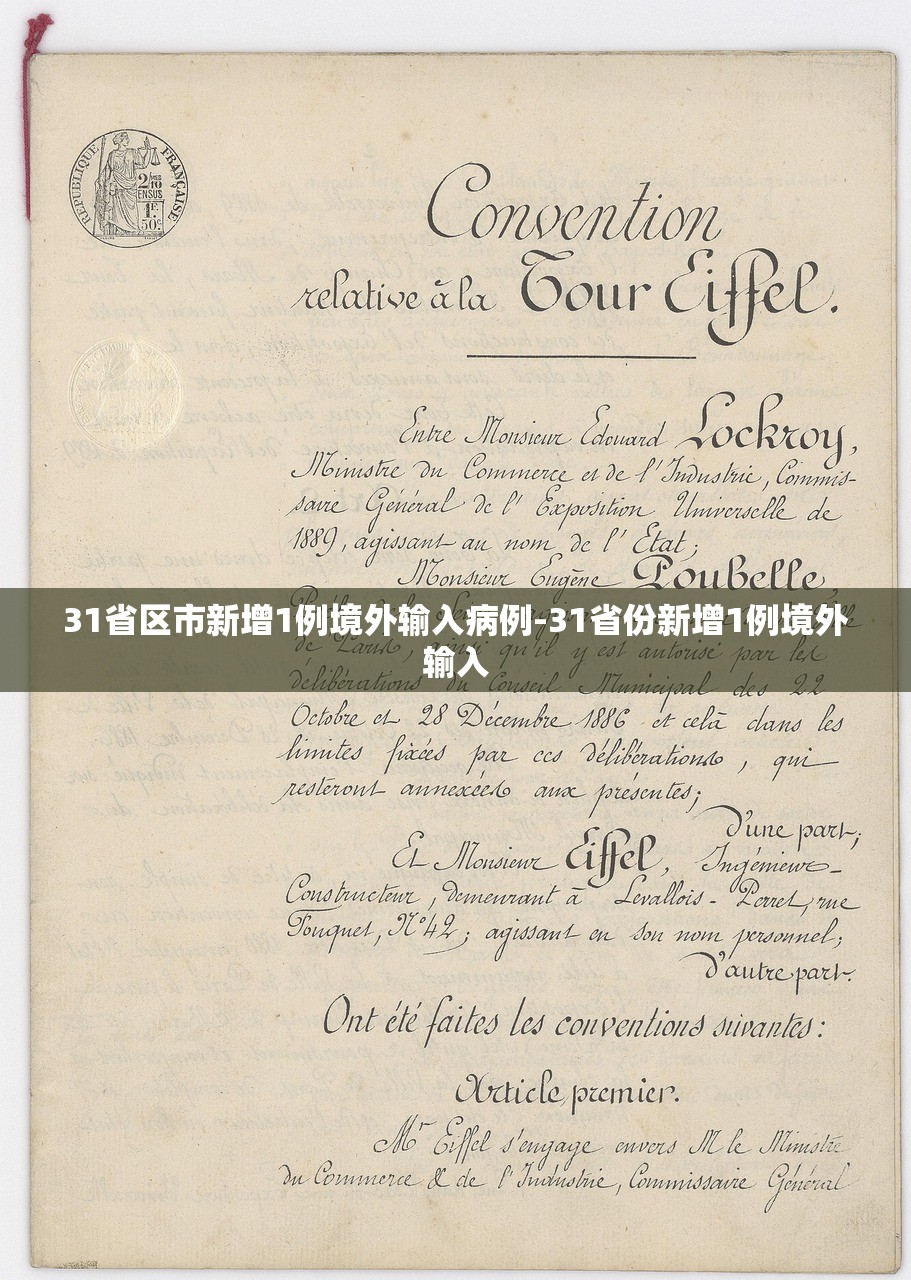 RÉPUBLIQUE FRANÇAISE
2/10
EN SUS
1F.
50c.
Convention
relative à la Tour Eiffel.
Entre Monsieur Edouard Lockroy,
Ministre du Commerce et de l'Industrie, Commis-
saire Général de l'Exposition Universelle de
1889, agissant au nom de l'Etat;
Monsieur Eugène Poubelle
31省区市新增1例境外输入病例-31省份新增1例境外
输入
de Paris, ainsi qu'il y est autorisé par les
délibérations du Conseil Municipal des 22
Octobre et 28 Décembre 1886 et celà dans les
limites fixées par ces délibérations, qui
resteront annexées aux présentes;
D'une part;
Et Monsieur Eiffel, Ingénieur-
Constructeur, demeurant à Levallois-Perret, rue
Fouquet, N° 42; agissant en son nom personnel;
D'autre part.
Ont été faites les conventions suivantes:
Article premier.
Mr Eiffel s'engage envers M le Ministre
du Commerce & de l'Industrie, Commissaire Général